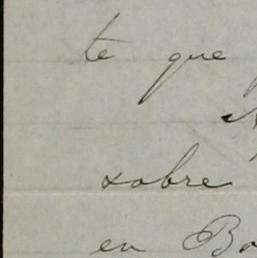 te que
sobre
en Bo